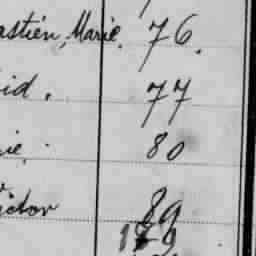 astién, Marie. 76.
id. 77
ie. 80
ictor 89
189